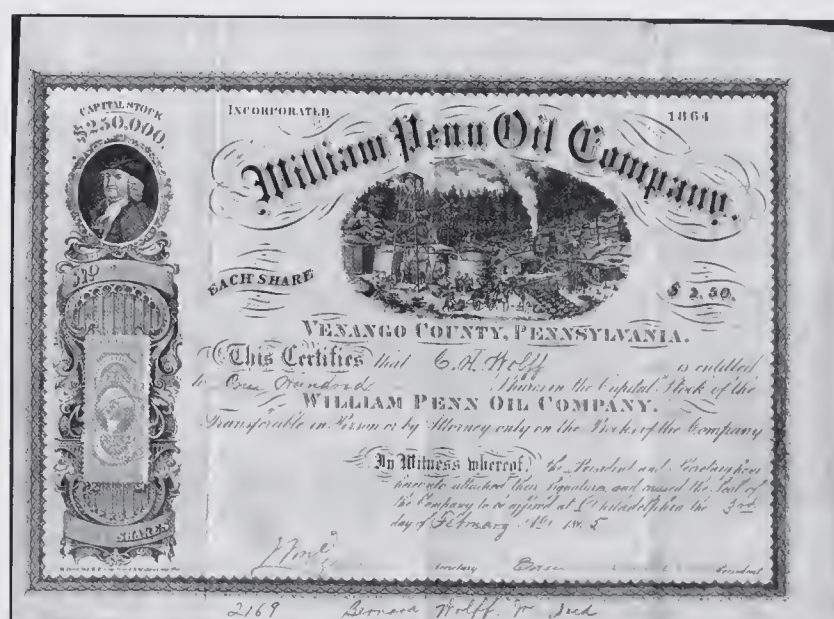 CAPITAL STOCK
$250,000.
INCORPORATED
1864
William Penn Oil Company.
EACH SHARE
$ 2.50.
No
VENANGO COUNTY, PENNSYLVANIA.
This Certifies that C. H. Wolff is entitled
to One Hundred Shares in the Capital Stock of the
WILLIAM PENN OIL COMPANY.
Transferable in Person or by Attorney only on the Books of the Company
In Witness whereof, the President and Secretary have
hereunto attached their Signatures and caused the Seal of
the Company to be affixed at Philadelphia the 3rd
day of February 5
SHARES
Secretary
President
2169 Bernard Wolff